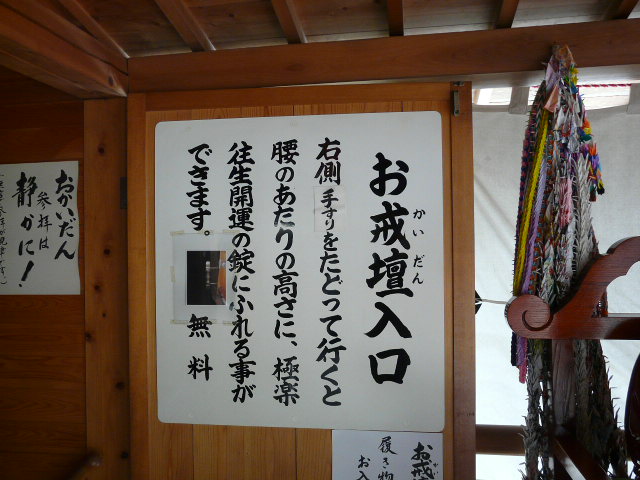 お戒壇入口
かいだん
右側手すりをたどって行くと
腰のあたりの高さに、極楽
往生開運の錠にふれる事が
できます。
無料
おかいだん
参拝は
静かに!
お戒
履き物
お入